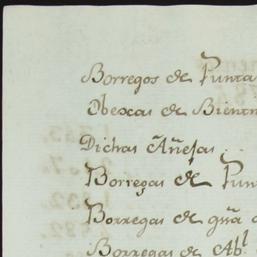 Borregos de Punta
Obexas de Bient
Dichas Añejas . .
Borregas de Pun
Borregas de gũa d
Borregas de Abl